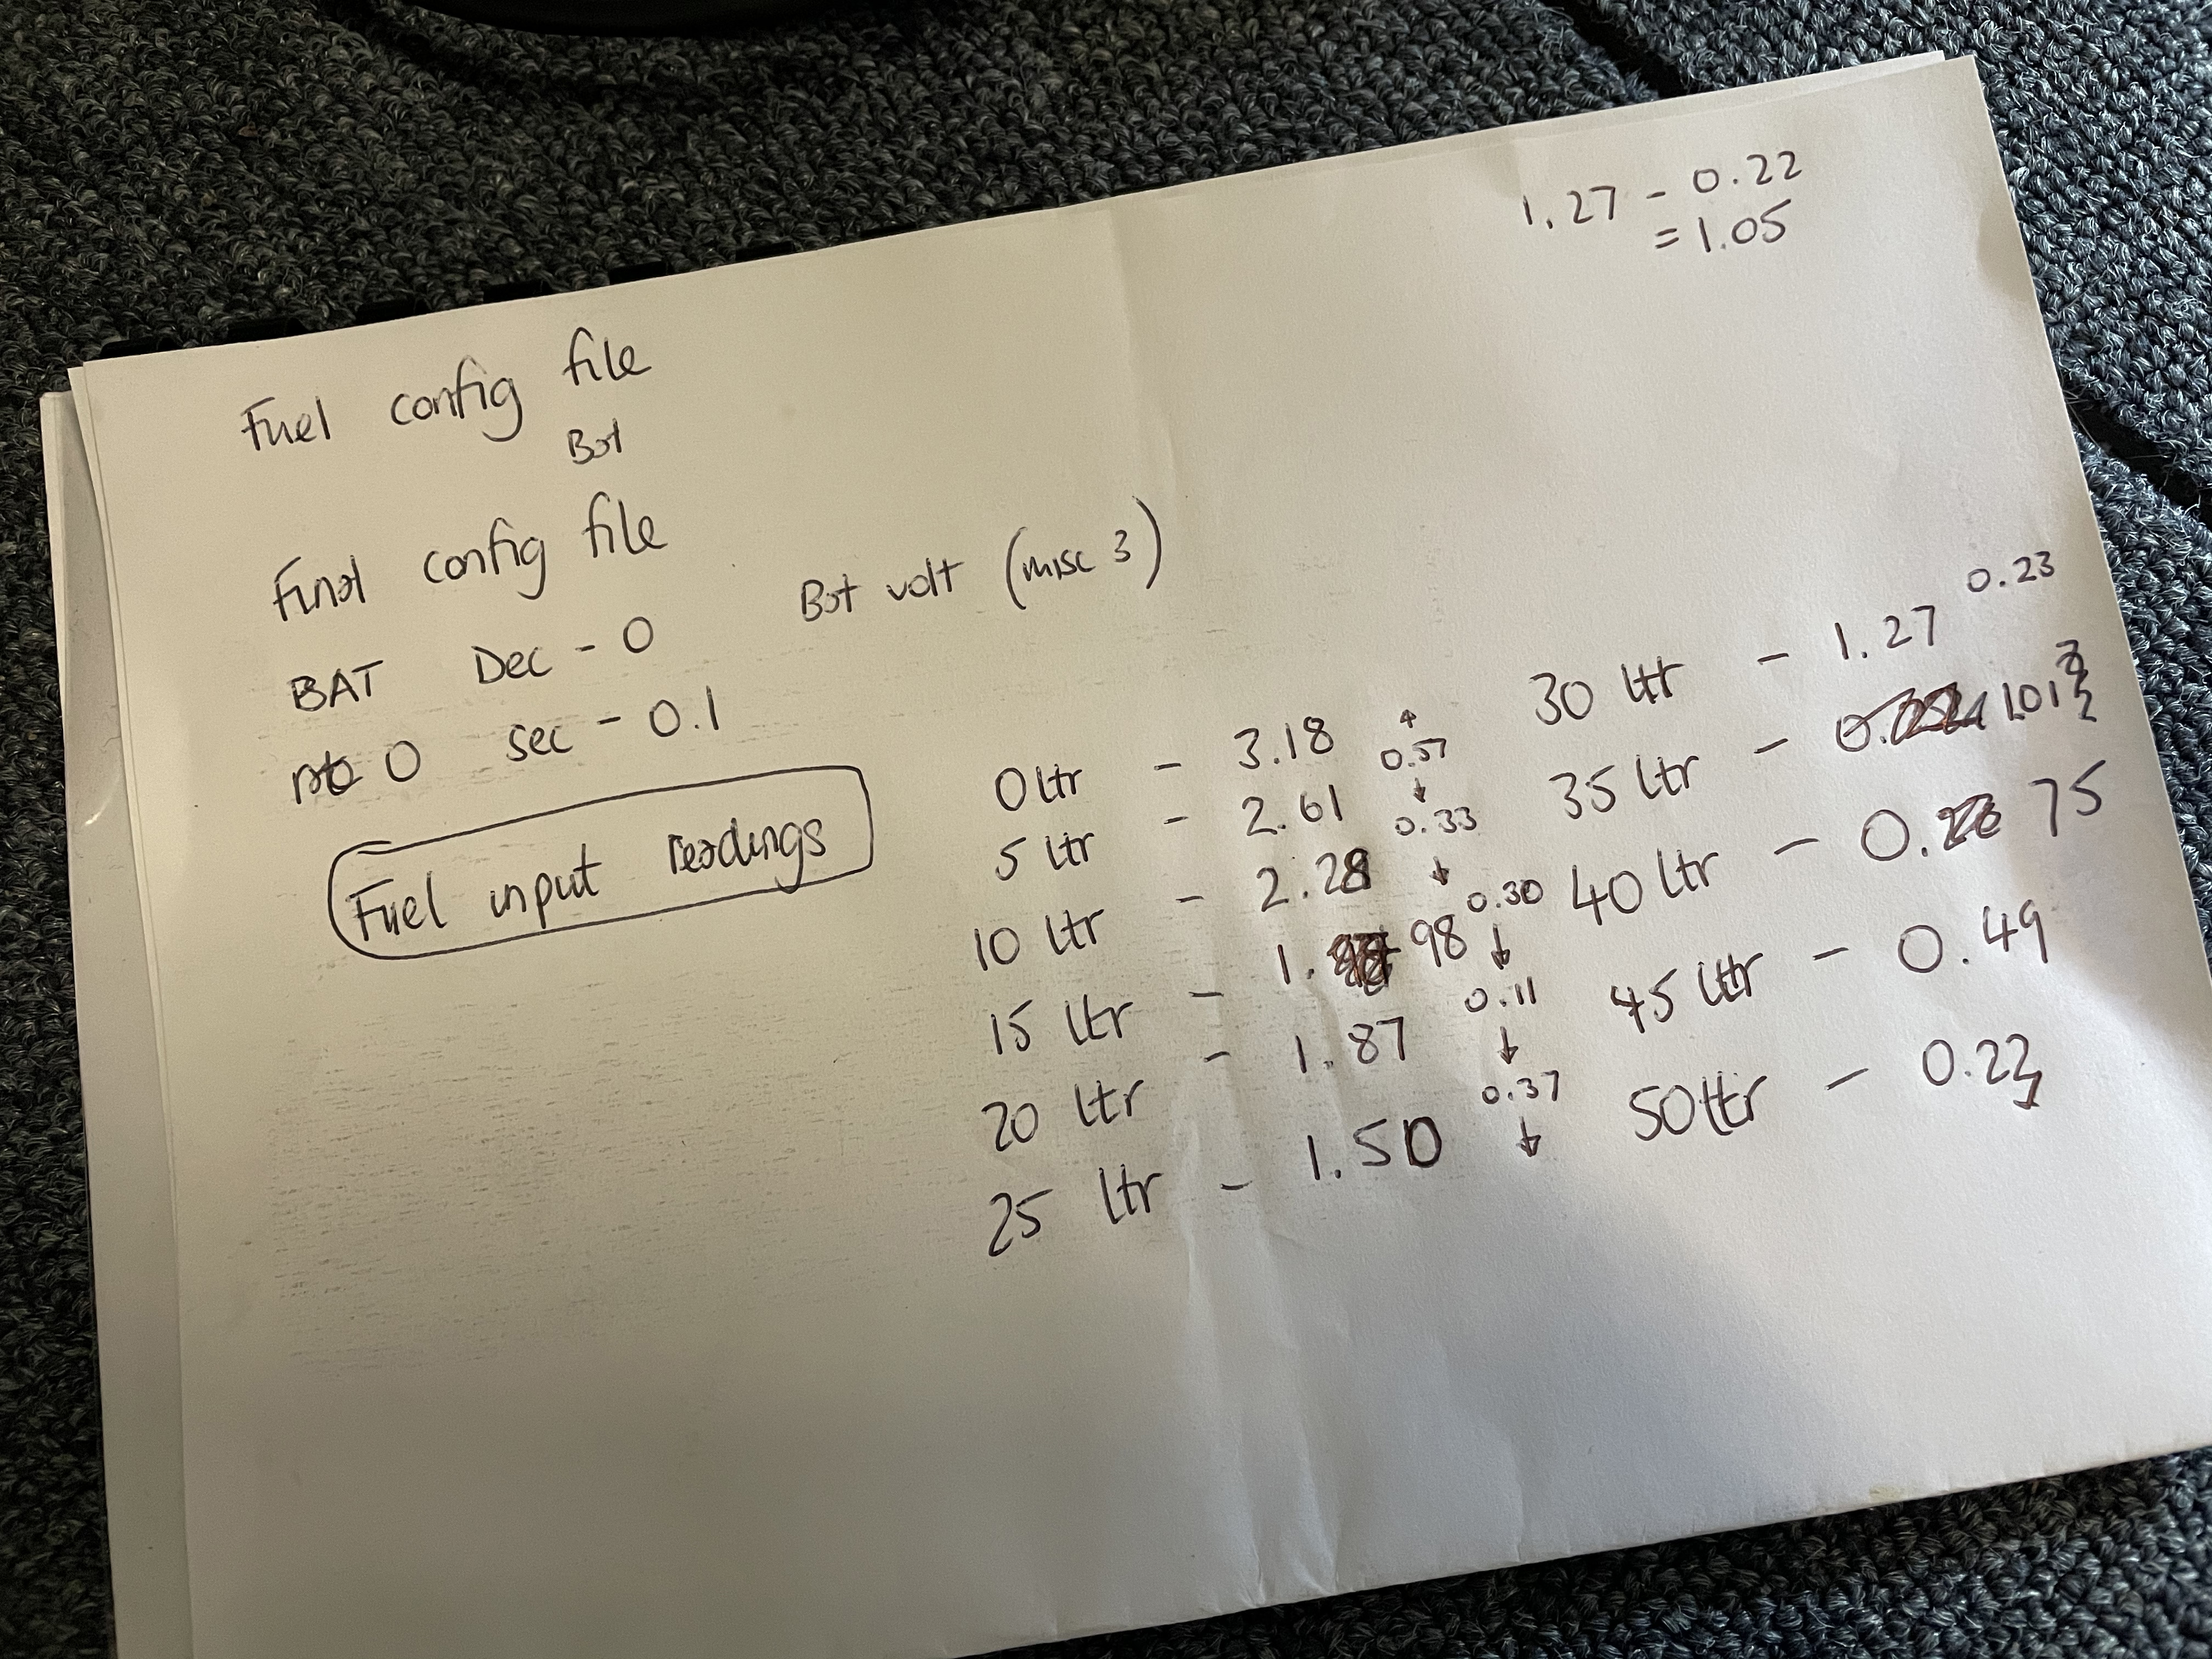 1.27 - 0.22
= 1.05
Fuel config file
Bat
Final config file
BAT Dec - 0 Bat volt (misc 3)
0 sec - 0.1
Fuel input readings
0 ltr - 3.18
0.57
5 ltr - 2.61
0.33
10 ltr - 2.28
0.30
15 ltr - 1.98
0.11
20 ltr - 1.87
0.37
25 ltr - 1.50
30 ltr - 1.27 0.23
35 ltr - 1.01
40 ltr - 0.75
45 ltr - 0.49
50 ltr - 0.23